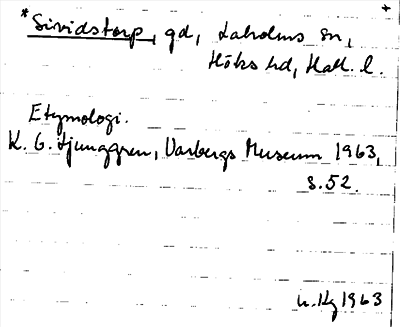 *Sividstorp, gd, Laholms sn, +
Höks hd, Hall. l.
Etymologi.
K. G. Ljunggren, Varbergs Museum 1963,
s. 52.
1963